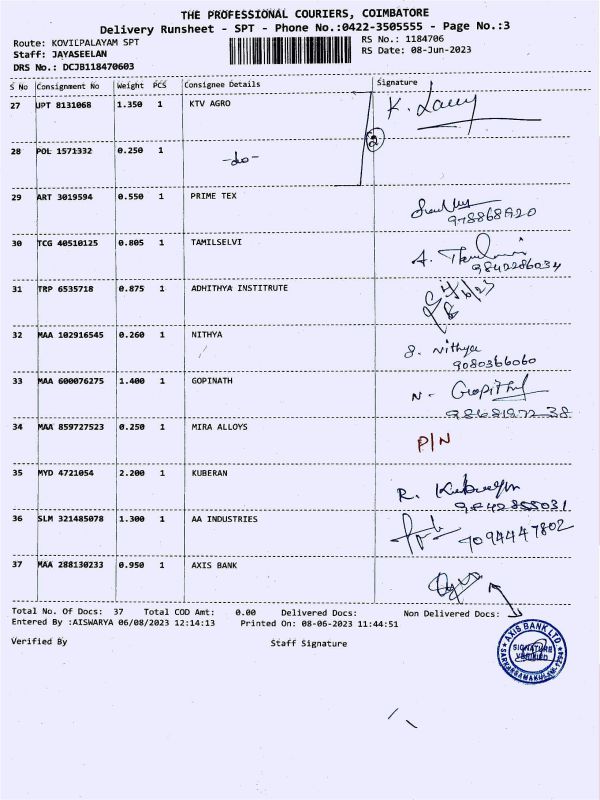 THE PROFESSIONAL COURIERS, COIMBATORE
Delivery Runsheet - SPT - Phone No.:0422-3505555 - Page No.:3
Route: KOVILPALAYAM SPT RS No.: 1184706
Staff: JAYASEELAN RS Date: 08-Jun-2023
DRS No.: DCJB118470603
S No Consignment No Weight PCS Consignee Details Signature
27 UPT 8131068 1.350 1 KTV AGRO K.
28 POL 1571332 0.250 1 -do- 2
29 ART 3019594 0.550 1 PRIME TEX
30 TCG 40510125 0.805 1 TAMILSELVI A.
9842286034
31 TRP 6535718 0.875 1 ADHITHYA INSTITRUTE
32 MAA 102916545 0.260 1 NITHYA S. Nithya
9080366060
33 MAA 600076275 1.400 1 GOPINATH N -
34 MAA 859727523 0.250 1 MIRA ALLOYS P/N
35 MYD 4721054 2.200 1 KUBERAN R.
9842855031
36 SLM 321485078 1.300 1 AA INDUSTRIES 7094447802
37 MAA 288130233 0.950 1 AXIS BANK
Total No. Of Docs: 37 Total COD Amt: 0.00 Delivered Docs: Non Delivered Docs:
Entered By :AISWARYA 06/08/2023 12:14:13 Printed On: 08-06-2023 11:44:51
Verified By Staff Signature
AXIS BANK LTD.
SIGNATURE
VERIFIED